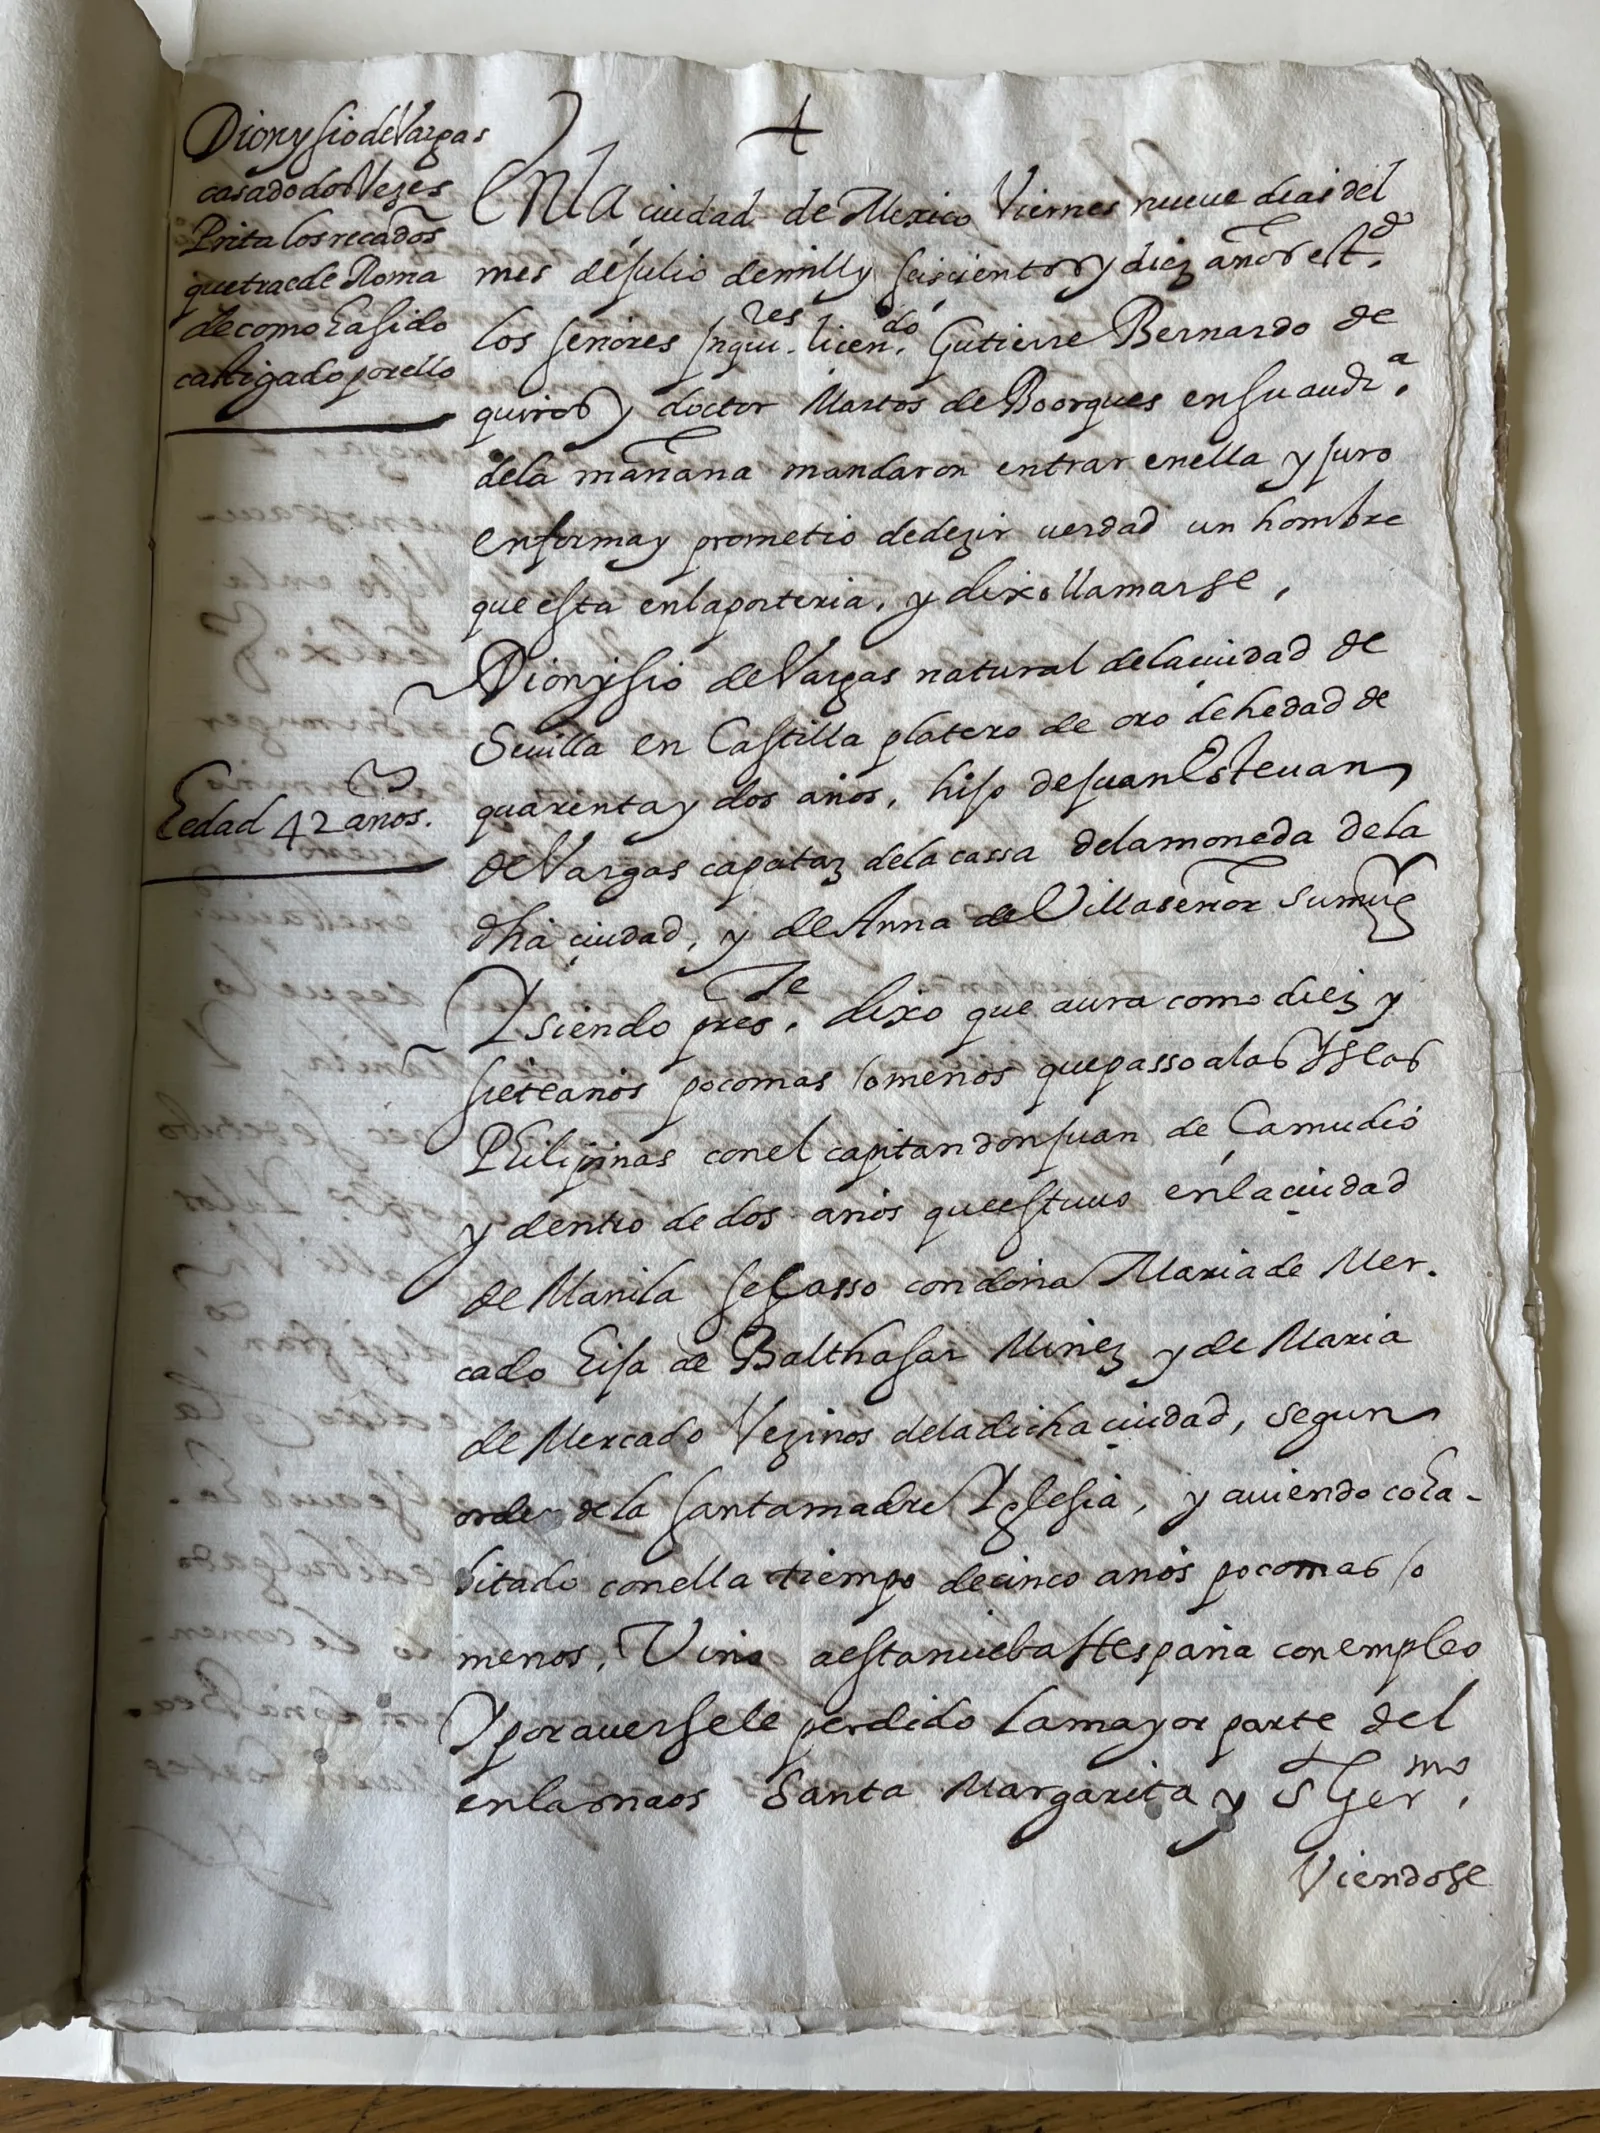 Dionysio de Vargas
casado dos Vezes
Prita los recados
que trae de Roma
de como ha sido
castigado por ello
En la ciudad de Mexico Viernes nueue dias del
mes de Julio de mill y seiscientos y diez años est.do
los señores Inqui.res licen.do Gutierre Bernardo de
quiros y doctor Martos de Boorques en su aud.a
de la mañana mandaron entrar en ella y juro
en forma y prometio de dezir uerdad un hombre
que esta en la porteria, y dixo llamarse,
Dionysio de Vargas natural de la ciudad de
Seuilla en Castilla platero de oro de hedad de
Eedad 42 años.
quarenta y dos años, hijo de Juan Esteuan
de Vargas capataz de la cassa de la moneda de la
dha ciudad, y de Anna de Villaseñor su mug
Y siendo pres.te dixo que aura como diez y
siete años poco mas o menos que passo a las Yslas
Philipinas con el capitan don Juan de Çamudio
y dentro de dos años que estuuo en la ciudad
de Manila se casso con doña Maria de Mer-
cado hija de Balthasar Nuñez y de Maria
de Mercado Vezinos de la dicha ciudad, segun
orde de la santa madre Yglesia, y auiendo coha-
bitado con ella tiempo de cinco años poco mas o
menos, Vino a esta nueba Hespaña con empleo
Y por auersele perdido la mayor parte del
en las naos Santa Margarita y S Ger.mo
Viendose